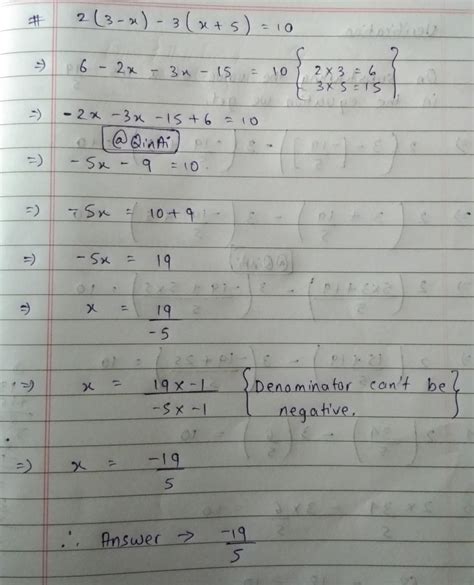 # 2(3-x) - 3(x+5) = 10
⇒ 6 - 2x - 3x - 15 = 10 { 2×3 = 6
3×5 = 15 }
⇒ -2x - 3x - 15 + 6 = 10
@QinAi
⇒ -5x - 9 = 10
⇒ -5x = 10+9
⇒ -5x = 19
⇒ x = 19/-5
⇒ x = 19×-1/-5×-1 {Denominator can't be
negative.}
⇒ x = -19/5
∴ Answer → -19/5